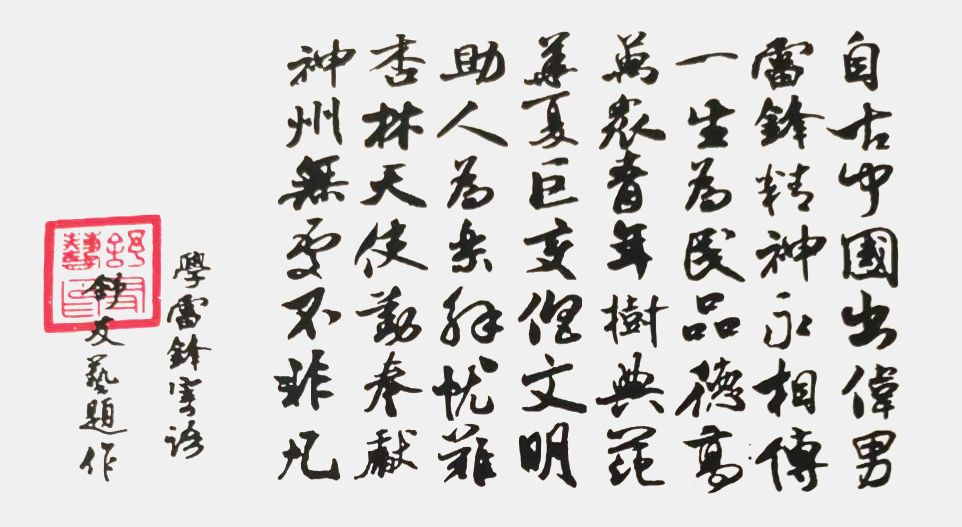 自古中國出偉男
雷鋒精神永相傳
一生為民品德高
萬衆青年樹典范
華夏巨变文明
助人為楽解忧難
杏林天使勤奉獻
神州無處不非凡
學雷鋒寄語
藝題作